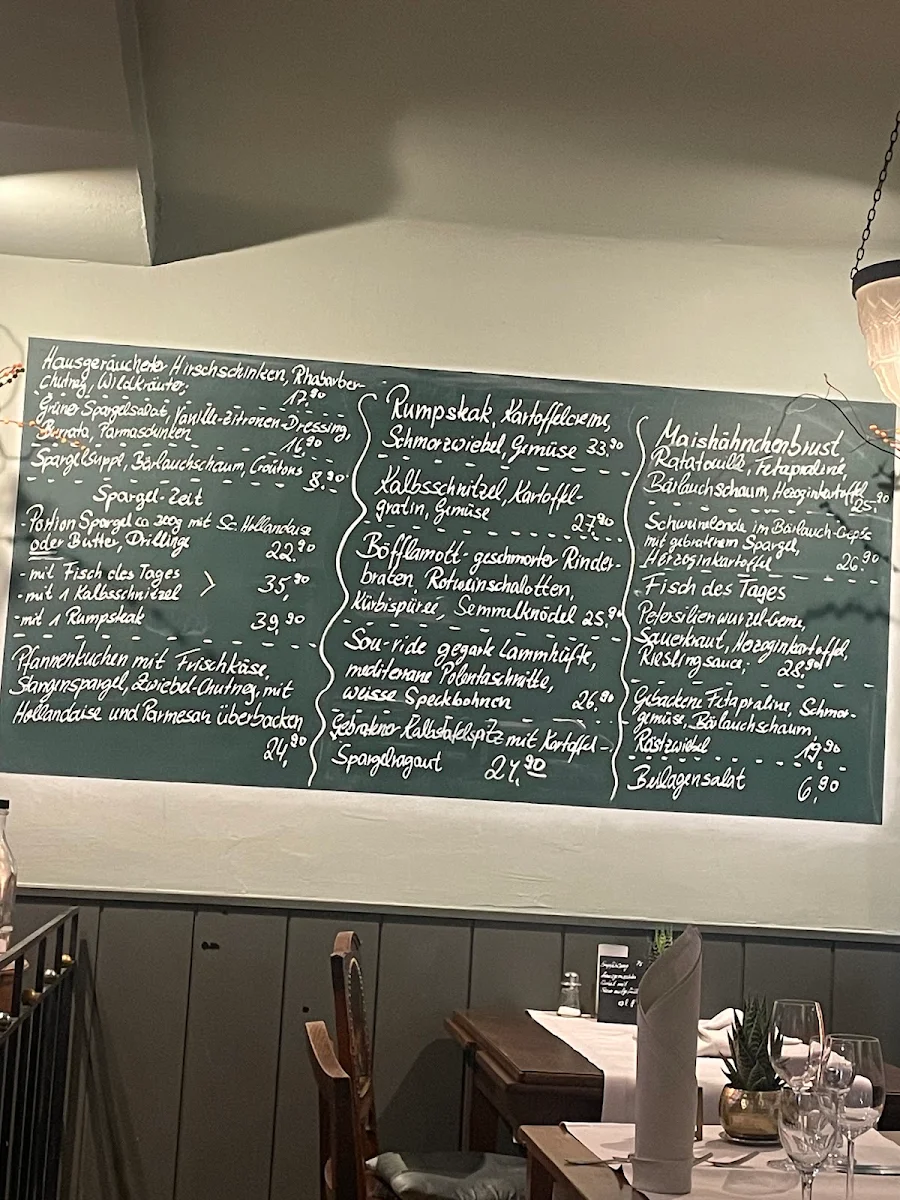 Hausgeräucherter Hirschschinken, Rhabarber-
chutney, Wildkräuter. 17,90
Grüner Spargelsalat, Vanille-Zitronen-Dressing,
Burrata, Parmaschinken 16,90
Spargelsuppe, Bärlauchschaum, Croûtons 8,90
Spargel-Zeit
- Portion Spargel ca 300g mit Sc. Hollandaise
oder Butter, Drillinge 22,90
- mit Fisch des Tages
- mit 1 Kalbsschnitzel > 35,90
- mit 1 Rumpsteak 39,90
Pfannenkuchen mit Frischkäse,
Stangenspargel, Zwiebel-Chutney, mit
Hollandaise und Parmesan überbacken
24,90
Rumpsteak, Kartoffelcreme,
Schmorzwiebel, Gemüse 33,90
Kalbsschnitzel, Kartoffel-
gratin, Gemüse 27,90
Böfflamott - geschmorter Rinder-
braten, Rotweinschalotten,
Kürbispüree, Semmelknödel 25,90
Sou-vide gegarte Lammhüfte,
mediterrane Polentaschnitte,
weisse Speckbohnen 26,90
Gebratener Kalbstafelspitz mit Kartoffel-
Spargelragout 24,90
Maishähnchenbrust
Ratatouille, Fetapraline
Bärlauchschaum, Herzoginkartoffel
25,90
Schweinelende im Bärlauch-Crêpe
mit gebratenem Spargel,
Herzoginkartoffel 26,90
Fisch des Tages
Petersilienwurzel-Creme,
Sauerkraut, Herzoginkartoffel,
Rieslingsauce, 28,90
Gebackene Fetapraline, Schmor-
gemüse, Bärlauchschaum,
Röstzwiebel 19,90
Beilagensalat 6,90